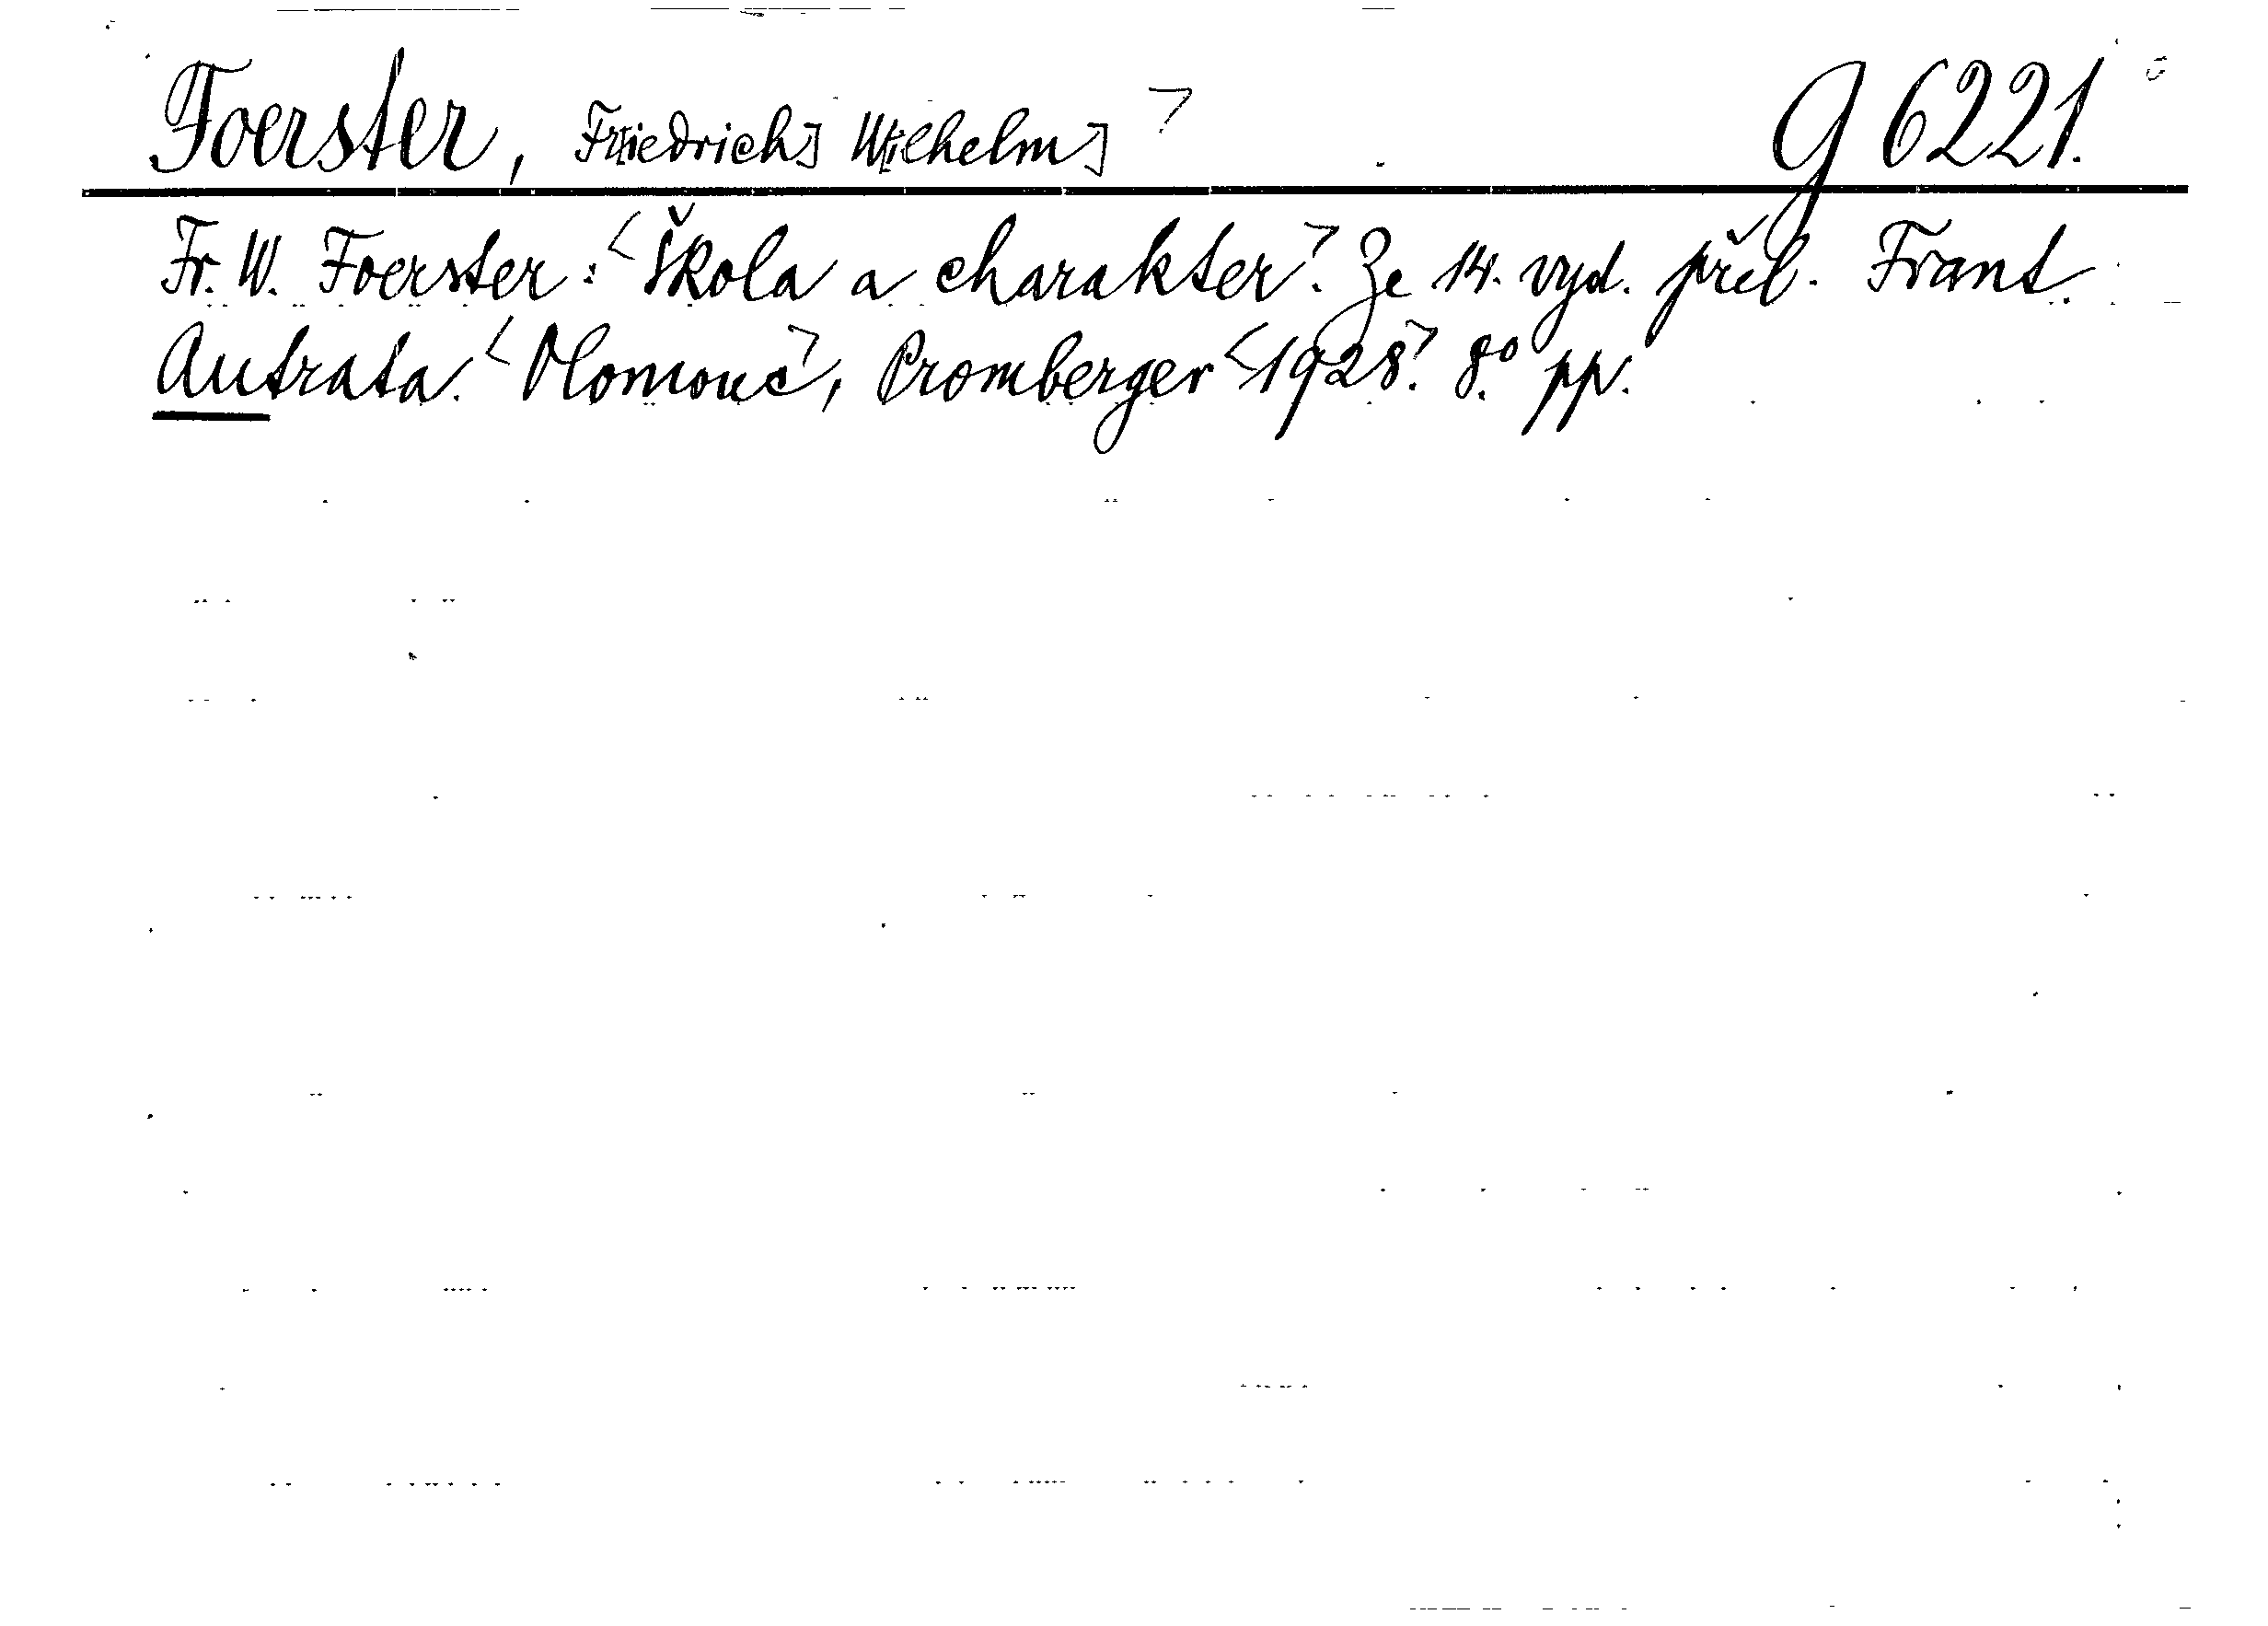 Foerster, Fr[iedrich] W[ilhelm] G 6221.
Fr. W. Foerster: <Škola a charakter>. Ze 14. vyd. přel. Frant.
Autrata. <Olomouc>, Promberger <1928>. 8.° pp.